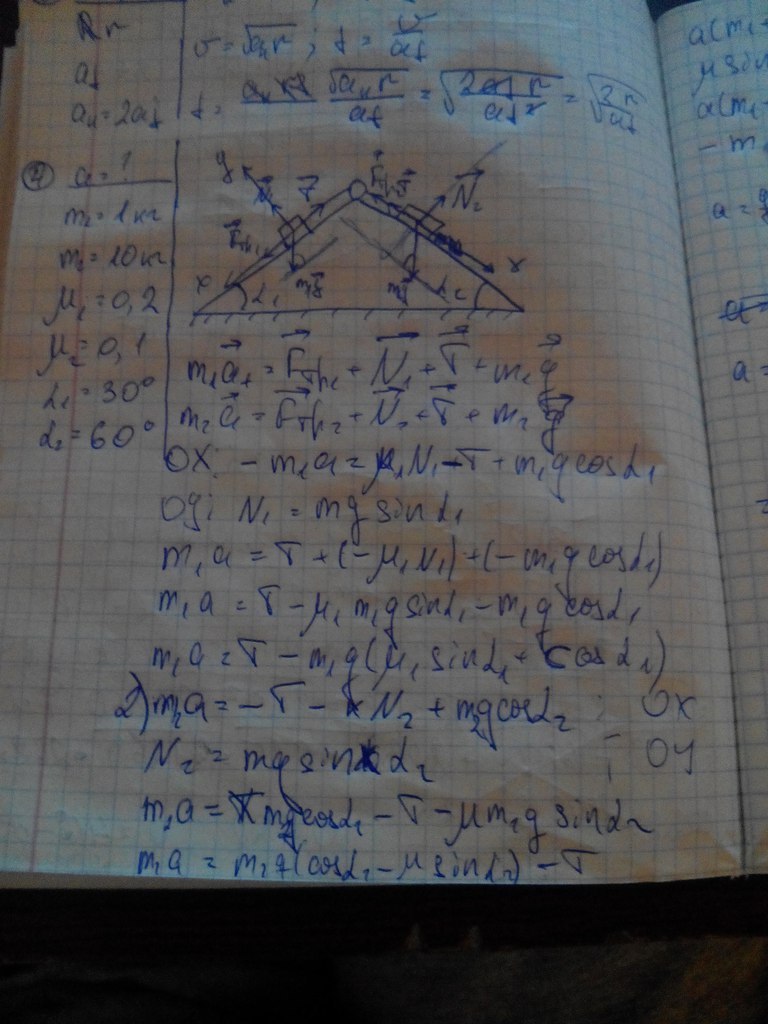 R r
v = √aₙr ; t = v/a_t
a_t
aₙ = 2a_t
t = √aₙr / a_t = √(2a_t r / a_t²) = √(2r / a_t)
④ a = ?
m₁ = 1 кг
m₂ = 10 кг
μ₁ = 0,2
μ₂ = 0,1
α₁ = 30°
α₂ = 60°
y
T
N₂
Fтр₁
x
α₁
m₁g
m₂g
α₂
x
m₁a₁ = Fтр₁ + N₁ + T + m₁g
m₂a = Fтр₂ + N₂ + T + m₂g
OX: - m₁a = μ₁N₁ - T + m₁g cosα₁
Oy: N₁ = mg sinα₁
m₁a = T + (-μ₁N₁) + (-m₁g cosα₁)
m₁a = T - μ₁m₁g sinα₁ - m₁g cosα₁
m₁a = T - m₁g(μ₁ sinα₁ + cosα₁)
2) m₂a = - T - N₂ + m₂g cosα₂ ; OX
N₂ = mg sin α₂ ; OY
m₂a = m₂g cosα₂ - T - μm₂g sinα₂
m₂a = m₂g(cosα₂ - μ sinα₂) - T
a(m₁
μ sin
a(m₁
- m
a =
a =
=